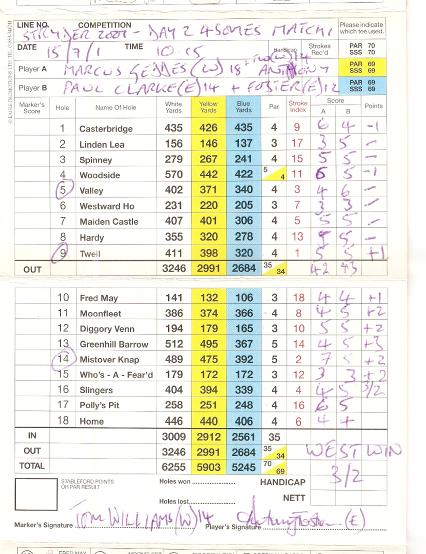 LINE NO. COMPETITION Please indicate which tee used.
STRYDER 2001 - DAY 2 4SOMES MATCH 1
DATE 15/7/1 TIME 10.15 Handicap Strokes Rec'd PAR 70 SSS 70
Player A MARCUS GEDDES (W) 18 + (W) 14 ANTHONY PAR 69 SSS 69
Player B PAUL CLARKE (E) 14 + FOSTER (E) 12 PAR 69 SSS 69
Marker's Score Hole Name Of Hole White Yards Yellow Yards Blue Yards Par Stroke Index Score A B Points
1 Casterbridge 435 426 435 4 9 6 4 -1
2 Linden Lea 156 146 137 3 17 3 5 -
3 Spinney 279 267 241 4 15 5 5 -
4 Woodseat 570 442 422 5 4 11 6 5 -1
5 Valley 402 371 340 4 3 4 6 -
6 Westward Ho 231 220 205 3 7 3 3 -
7 Maiden Castle 407 401 306 4 5 5 5 -
8 Hardy 355 320 278 4 13 5 5 -
9 Tweil 411 398 320 4 1 5 5 +1
OUT 3246 2991 2684 35 34 42 43
10 Fred May 141 132 106 3 18 4 4 +1
11 Moonfleet 386 374 366 4 8 4 5 +2
12 Diggory Venn 194 179 165 3 10 5 5 +2
13 Greenhill Barrow 512 495 367 5 14 4 5 +3
14 Mistover Knap 489 475 392 5 2 7 5 +2
15 Who's - A - Fear'd 179 172 172 3 12 3 3 +2
16 Slingers 404 394 339 4 4 4 5 3/2
17 Polly's Pit 258 251 248 4 16 6 5
18 Home 446 440 406 4 6 4 4
IN 3009 2912 2561 35
OUT 3246 2991 2684 35 34 WEST WIN
TOTAL 6255 5903 5245 70 69 3/2
STABLEFORD POINTS OR PAR RESULT Holes won HANDICAP
Holes lost NETT
Marker's Signature TOM WILLIAMS (W) 14 Player's Signature (E)